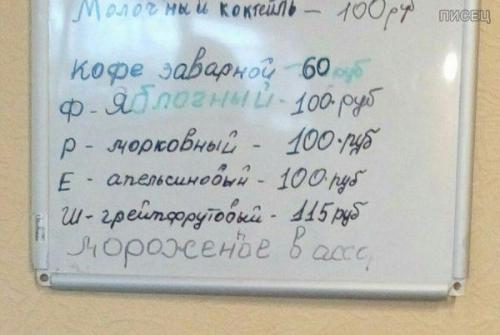 Молочный коктейль - 100 руб
писец
Кофе заварной - 60 руб
Ф - Яблочный - 100 руб
Р - морковный - 100 руб
Е - апельсиновый - 100 руб
Ш - грейпфрутовый - 115 руб
мороженое в асс